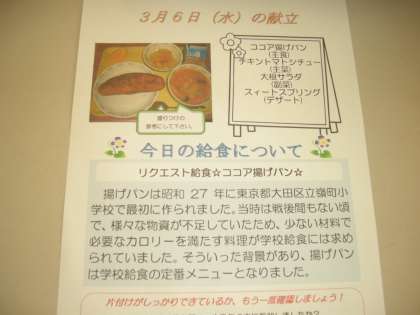 3月6日(水)の献立
ココア揚げパン
(主食)
チキントマトシチュー
(主菜)
大根サラダ
(副菜)
スィートスプリング
(デザート)
盛りつけの
参考にして下さい。
今日の給食について
リクエスト給食☆ココア揚げパン☆
揚げパンは昭和 27 年に東京都大田区立嶺町小
学校で最初に作られました。当時は戦後間もない頃
で、様々な物資が不足していたため、少ない材料で
必要なカロリーを満たす料理が学校給食には求め
られていました。そういった背景があり、揚げパン
は学校給食の定番メニューとなりました。
片付けがしっかりできているか、もう一度確認しましょう！